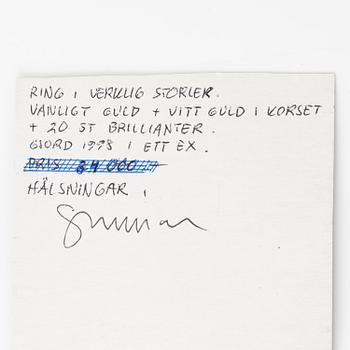 RING I VERKLIG STORLEK.
VANLIGT GULD + VITT GULD I KORSET
+ 20 ST BRILLIANTER.
GJORD 1998 I ETT EX.
PRIS 34 000
HÄLSNINGAR,
Gunnar